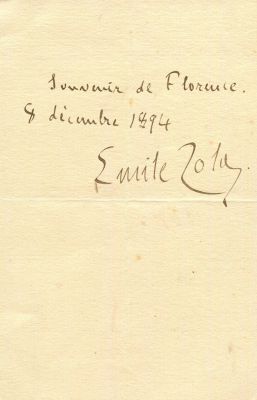 Souvenir de Florence.
8 décembre 1894
Emile Zola